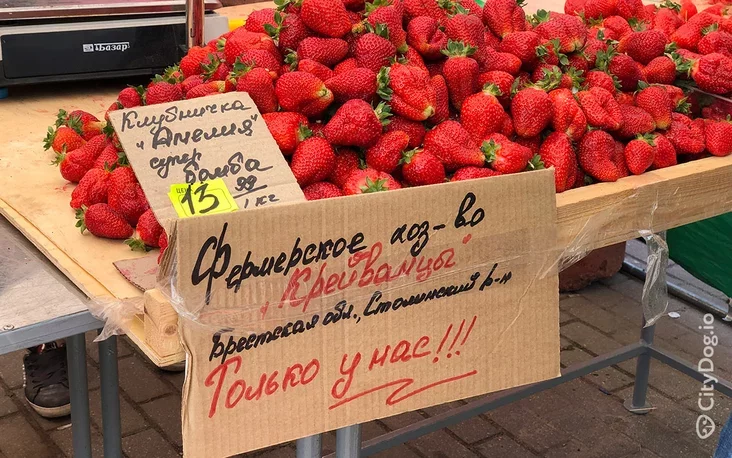 1ТБазар
Клубника
"Анелия"
супер
бомба
ЦЕНА
13 99
1 кг
Фермерское хоз-во
"Крейванцы"
Брестская обл., Столинский р-н
Только у нас!!!
CityDog.io